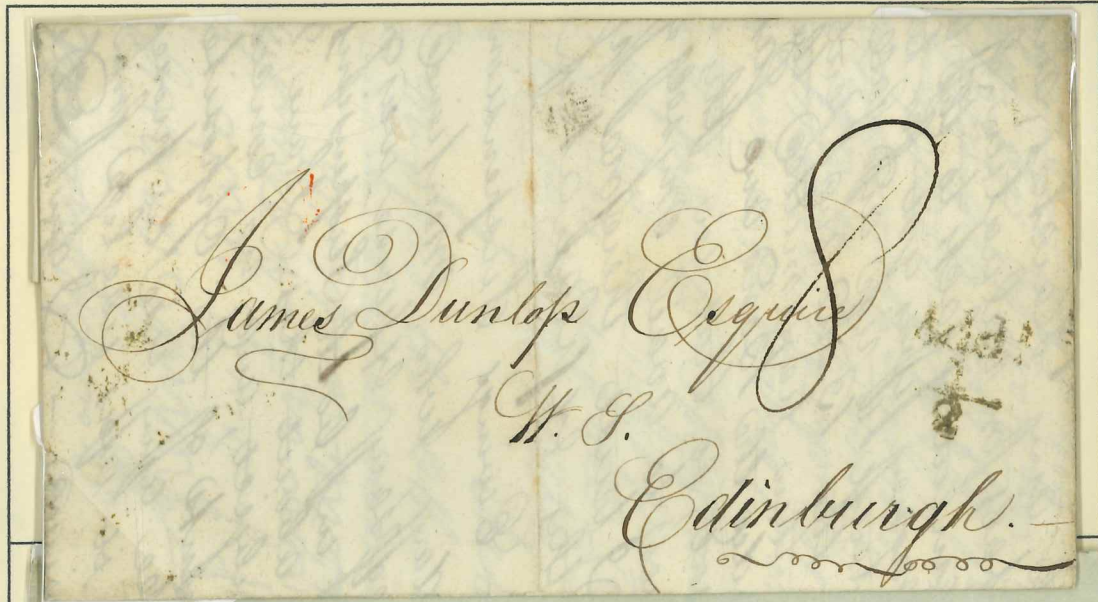 James Dunlop Esquire
8
W. S.
Edinburgh.